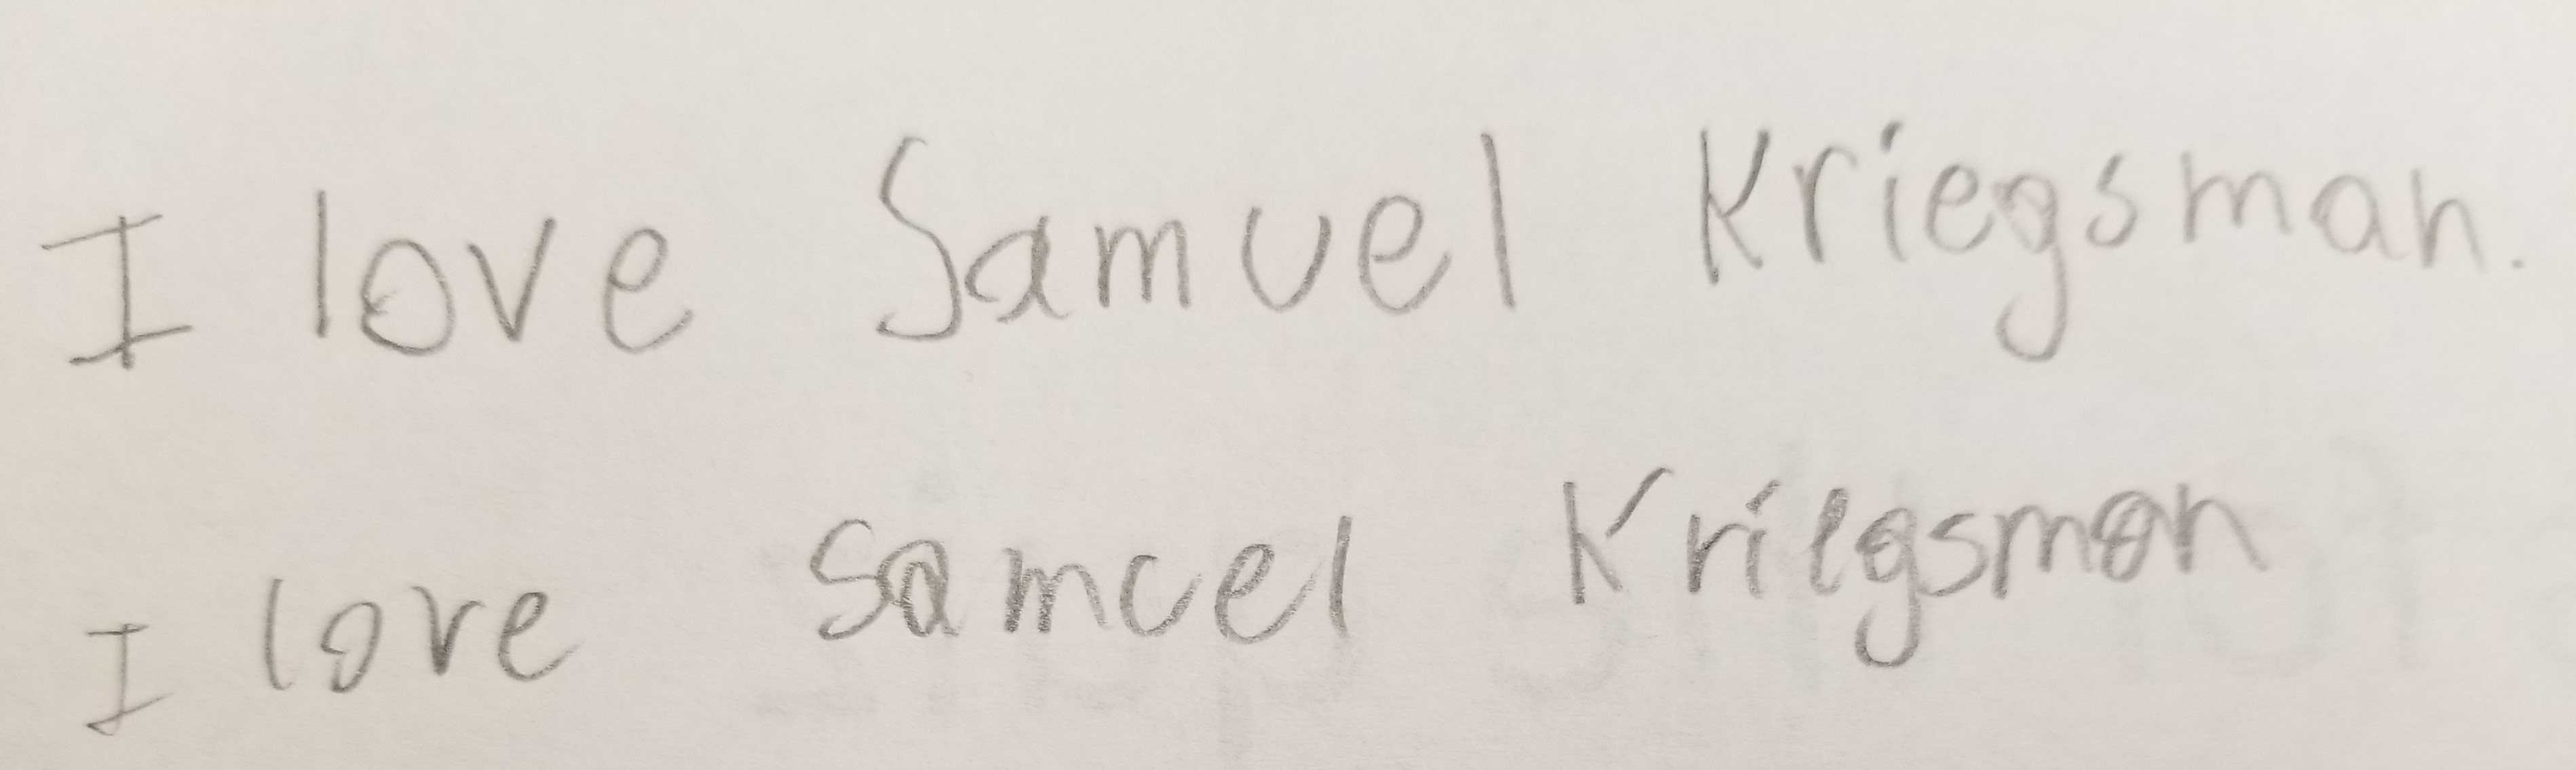 I love Samuel Kriegsman.
I love Samuel Kriegsman